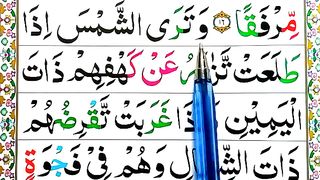 مِّرْفَقًا ۝١٦ وَتَرَى الشَّمْسَ اِذَا
طَلَعَتْ عَنْ كَهْفِهِمْ ذَاتَ
الْيَمِيْنِ غَرَبَتْ تَّقْرِضُهُمْ
ذَاتَ وَهُمْ فِيْ فَجْوَةٍ